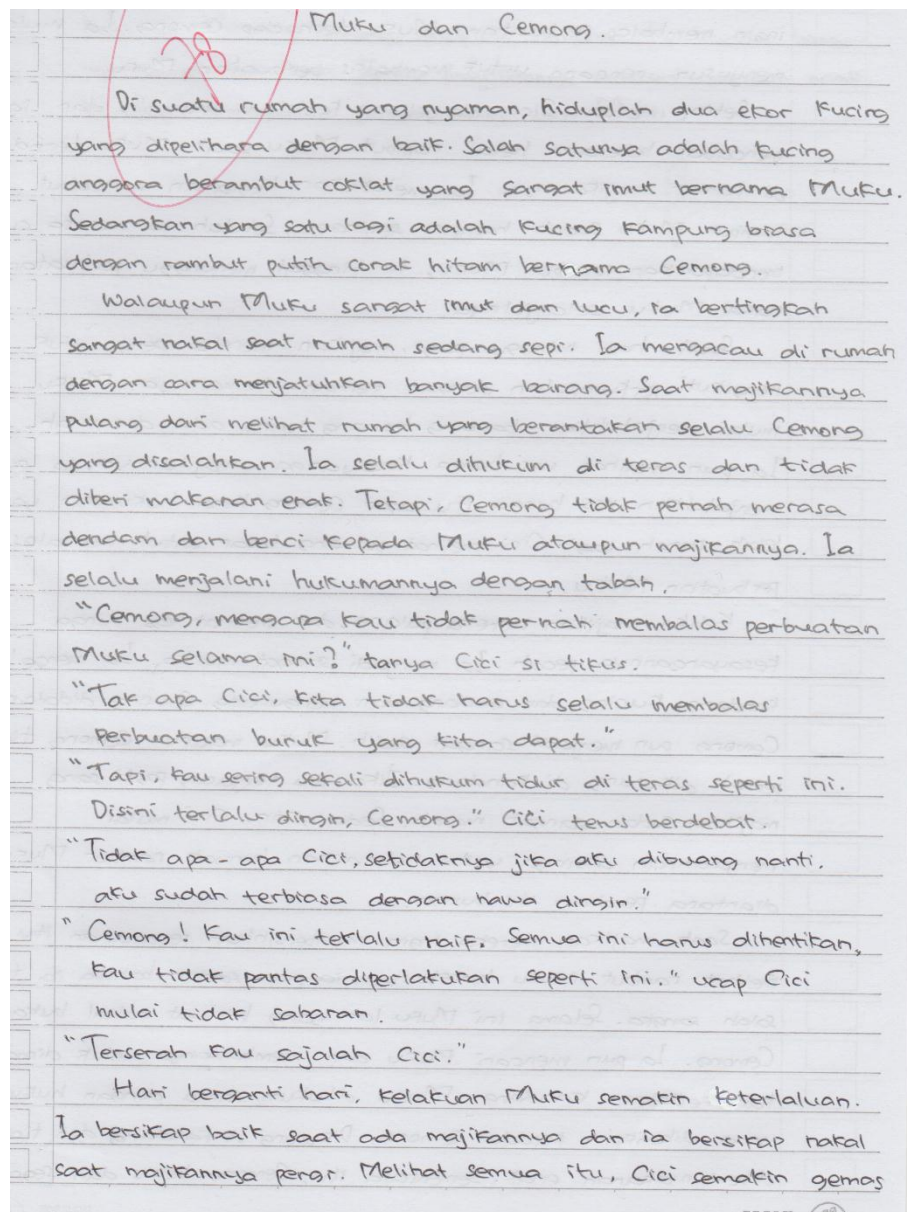 Muku dan Cemong.
78
Di suatu rumah yang nyaman, hiduplah dua ekor kucing
yang dipelihara dengan baik. Salah satunya adalah kucing
anggora berambut coklat yang sangat imut bernama Muku.
Sedangkan yang satu lagi adalah kucing kampung biasa
dengan rambut putih corak hitam bernama Cemong.
Walaupun Muku sangat imut dan lucu, ia bertingkah
sangat nakal saat rumah sedang sepi. Ia mengacau di rumah
dengan cara menjatuhkan banyak barang. Saat majikannya
pulang dan melihat rumah yang berantakan selalu Cemong
yang disalahkan. Ia selalu dihukum di teras dan tidak
diberi makanan enak. Tetapi, Cemong tidak pernah merasa
dendam dan benci kepada Muku ataupun majikannya. Ia
selalu menjalani hukumannya dengan tabah.
"Cemong, mengapa kau tidak pernah membalas perbuatan
Muku selama ini?" tanya Cici si tikus.
"Tak apa Cici, kita tidak harus selalu membalas
perbuatan buruk yang kita dapat."
"Tapi, kau sering sekali dihukum tidur di teras seperti ini.
Disini terlalu dingin, Cemong." Cici terus berdebat.
"Tidak apa-apa Cici, setidaknya jika aku dibuang nanti,
aku sudah terbiasa dengan hawa dingin."
"Cemong! Kau ini terlalu naif. Semua ini harus dihentikan,
kau tidak pantas diperlakukan seperti ini." ucap Cici
mulai tidak sabaran.
"Terserah kau sajalah Cici."
Hari berganti hari, kelakuan Muku semakin keterlaluan.
Ia bersikap baik saat ada majikannya dan ia bersikap nakal
saat majikannya pergi. Melihat semua itu, Cici semakin gemas